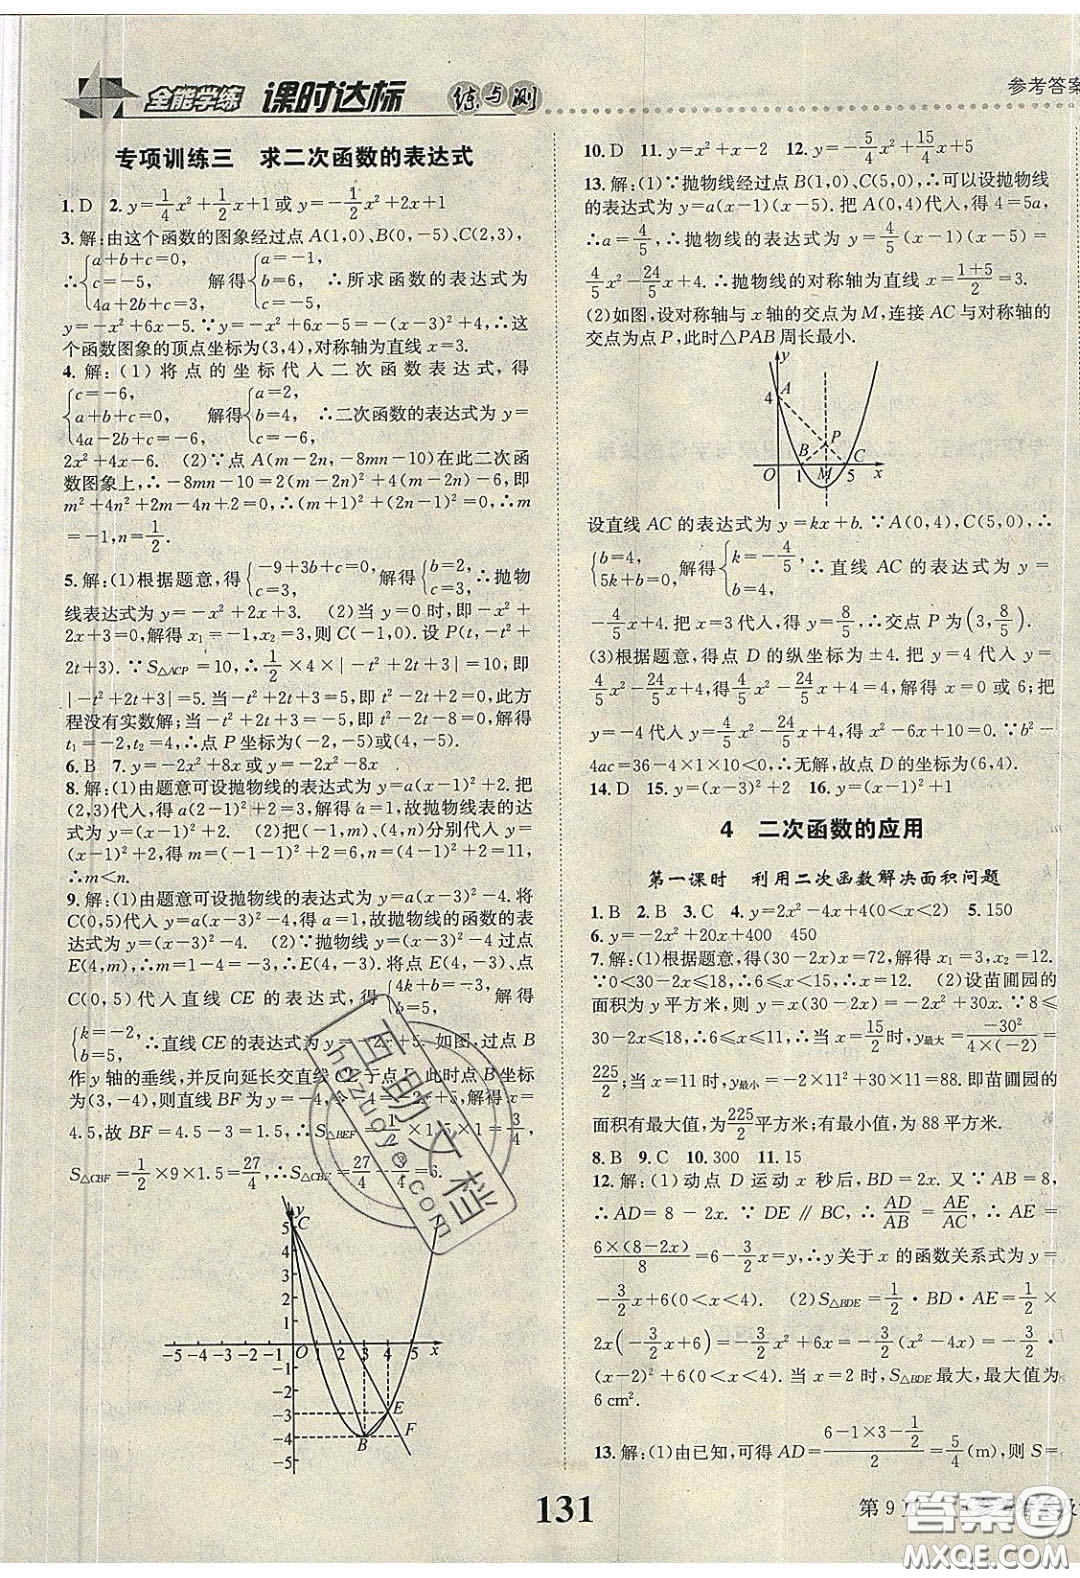 全能学练 课时达标 练与测
参考答案
专项训练三 求二次函数的表达式
1. D 2. y=1/4x²+1/2x+1或y=-1/2x²+2x+1
3. 解:由这个函数的图象经过点A(1,0)、B(0,-5)、C(2,3),
∴{a+b+c=0, c=-5, 4a+2b+c=3, 解得{a=-1, b=6, c=-5, ∴所求函数的表达式为
y=-x²+6x-5.∵y=-x²+6x-5=-(x-3)²+4,∴这
个函数图象的顶点坐标为(3,4),对称轴为直线x=3.
4. 解:(1)将点的坐标代入二次函数表达式,得
{c=-6, a+b+c=0, 4a-2b+c=-6, 解得{a=2, b=4, c=-6, ∴二次函数的表达式为y=
2x²+4x-6. (2)∵点A(m-2n,-8mn-10)在此二次函
数图象上,∴-8mn-10=2(m-2n)²+4(m-2n)-6,即
m²+4n²+2m-4n+2=0,∴(m+1)²+(2n-1)²=0,∴m
=-1,n=1/2.
5. 解:(1)根据题意,得{-9+3b+c=0, c=3, 解得{b=2, c=3, ∴抛物
线表达式为y=-x²+2x+3. (2)当y=0时,即-x²+
2x+3=0,解得x₁=-1,x₂=3,则C(-1,0).设P(t,-t²+
2t+3).∵S△ACP=10,∴1/2×4×|-t²+2t+3|=10,即
|-t²+2t+3|=5.当-t²+2t+3=5,即t²-2t+2=0,此方
程没有实数解;当-t²+2t+3=-5,即t²-2t-8=0,解得
t₁=-2,t₂=4,∴点P坐标为(-2,-5)或(4,-5).
6. B 7. y=-2x²+8x或y=-2x²-8x
8. 解:(1)由题意可设抛物线的表达式为y=a(x-1)²+2.把
(2,3)代入,得a(2-1)²+2=3,解得a=1,故抛物线表的达
式为y=(x-1)²+2. (2)把(1,m)、(4,n)分别代入y=
(x-1)²+2,得m=(1-1)²+2=2,n=(4-1)²+2=11,
∴m<n.
9. 解:(1)由题意可设抛物线的表达式为y=a(x-3)²-4.将
C(0,5)代入y=a(x-3)²-4,得a=1,故抛物线的函数的表
达式为y=(x-3)²-4. (2)∵抛物线y=(x-3)²-4过点
E(4,m),∴m=(4-3)²-4=-3,∴E(4,-3).将点E,点
C(0,5)代入直线CE的表达式,得{4k+b=-3, b=5, 解得
{k=-2, b=5, ∴直线CE的表达式为y=-2x+5. 如图,过点B
作y轴的垂线,并反向延长交直线CE于点F,此时点B坐标
为(3,-4),则直线BF为y=-4,令-2x+5=-4,解得x=
4.5,故BF=4.5-3=1.5,∴S△BEF=1/2×1.5×1=3/4,
S△CBF=1/2×9×1.5=27/4,∴S=27/4-3/4=6.
y
5 C
4
3
2
1
-5 -4 -3 -2 -1 O 1 2 3 4 5 x
-1
-2
-3 E
-4 B F
-5
10. D 11. y=x²+x-2 12. y=-5/4x²+15/4x+5
13. 解:(1)∵抛物线经过点B(1,0)、C(5,0),∴可以设抛物线
的表达式为y=a(x-1)(x-5).把A(0,4)代入,得4=5a,
∴a=4/5,∴抛物线的表达式为y=4/5(x-1)(x-5)=
4/5x²-24/5x+4,∴抛物线的对称轴为直线x=(1+5)/2=3.
(2)如图,设对称轴与x轴的交点为M,连接AC与对称轴的
交点为点P,此时△PAB周长最小.
y
A
4
P
B C
O 1 M 5 x
设直线AC的表达式为y=kx+b.∵A(0,4),C(5,0),∴
{b=4, 5k+b=0, 解得{k=-4/5, b=4, ∴直线AC的表达式为y=
-4/5x+4.把x=3代入,得y=8/5,∴交点P为(3,8/5).
(3)根据题意,得点D的纵坐标为±4.把y=4代入y=
4/5x²-24/5x+4,得4/5x²-24/5x+4=4,解得x=0或6;把
y=-4代入y=4/5x²-24/5x+4,得x²-6x+10=0.∵b²-
4ac=36-4×1×10=-4<0,∴无解,故点D的坐标为(6,4).
14. D 15. y=(x-3)²+2 16. y=(x-1)²+1
4 二次函数的应用
第一课时 利用二次函数解决面积问题
1. B 2. B 3. C 4. y=2x²-4x+4(0<x<2) 5. 150
6. y=-2x²+20x+400 450
7. 解:(1)根据题意,得(30-2x)x=72,解得x₁=3,x₂=12.
∵0<30-2x≤18,∴6≤x<15,∴x=12. (2)设苗圃园的
面积为y平方米,则y=x(30-2x)=-2x²+30x.∵8≤
30-2x≤18,∴6≤x≤11,∴当x=15/2时,y最大=-30²/(4×(-2))=
225/2;当x=11时,y最小=-2×11²+30×11=88.即苗圃园的
面积有最大值,最大值为225/2平方米;有最小值,为88平方米.
8. B 9. C 10. 300 11. 15
12. 解:(1)动点D运动x秒后,BD=2x.又∵AB=8,
∴AD=8-2x.∵DE∥BC,∴AD/AB=AE/AC,∴AE=
6×(8-2x)/8=6-3/2x=y,∴y关于x的函数关系式为y=
-3/2x+6(0<x<4). (2)S△BDE=1/2·BD·AE=1/2×
2x(-3/2x+6)=-3/2x²+6x=-3/2(x²-4x)=-3/2×
(x-2)²+6(0<x<4).当x=2时,S△BDE最大,最大值为
6 cm².
13. 解:(1)由已知,可得AD=(6-1×3-1/2)/2=5/4(m),则S=
131
第9
互助文档
hezuoye.com
答案圈
MXQE.COM